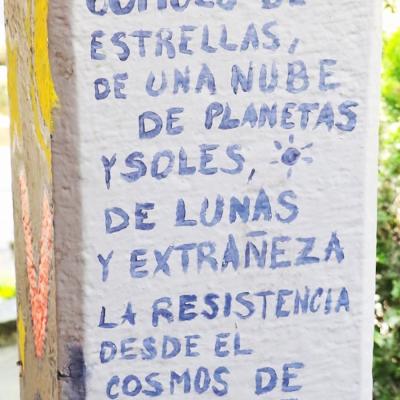 DE
ESTRELLAS,
DE UNA NUBE
DE PLANETAS
Y SOLES,
DE LUNAS
Y EXTRAÑEZA
LA RESISTENCIA
DESDE EL
COSMOS DE